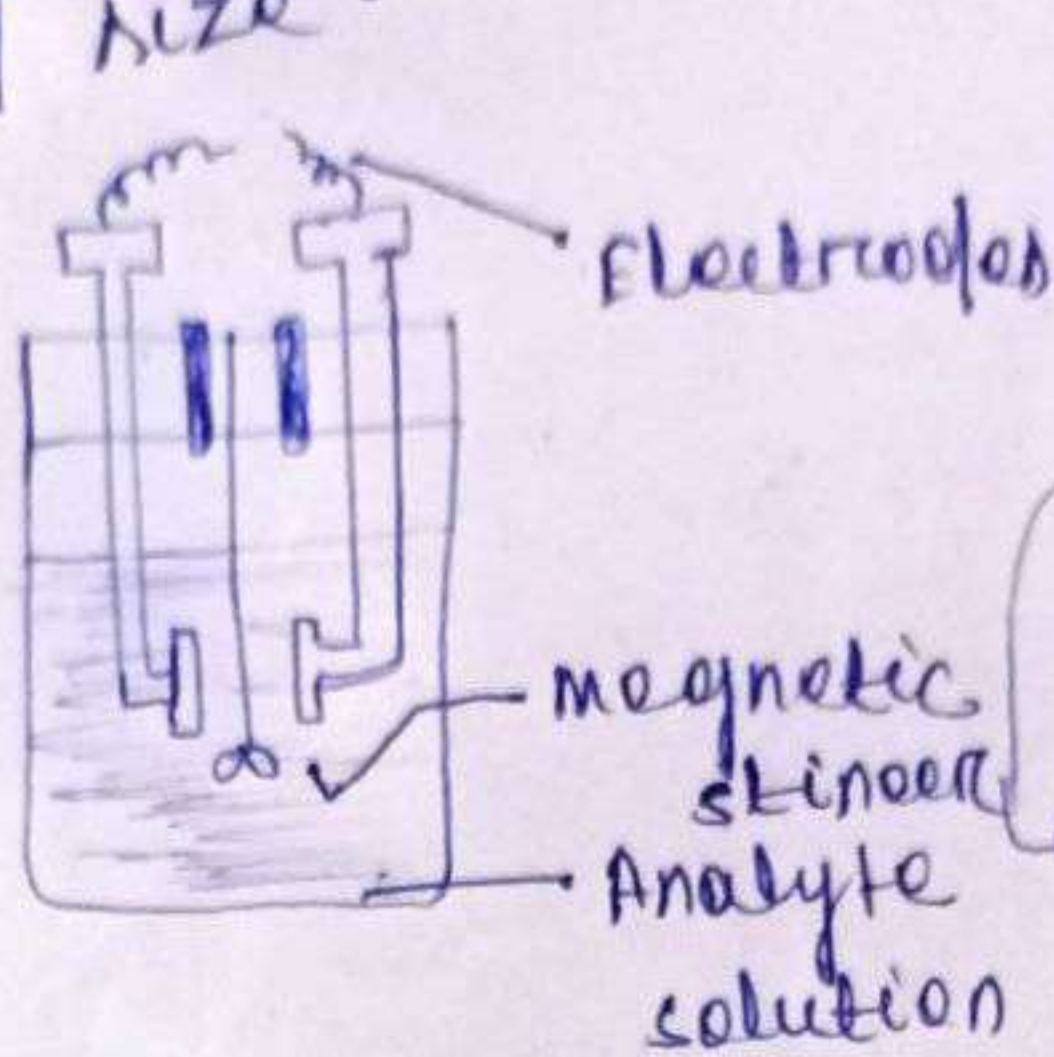 size
Electrodes
magnetic
stirrer
Analyte
solution